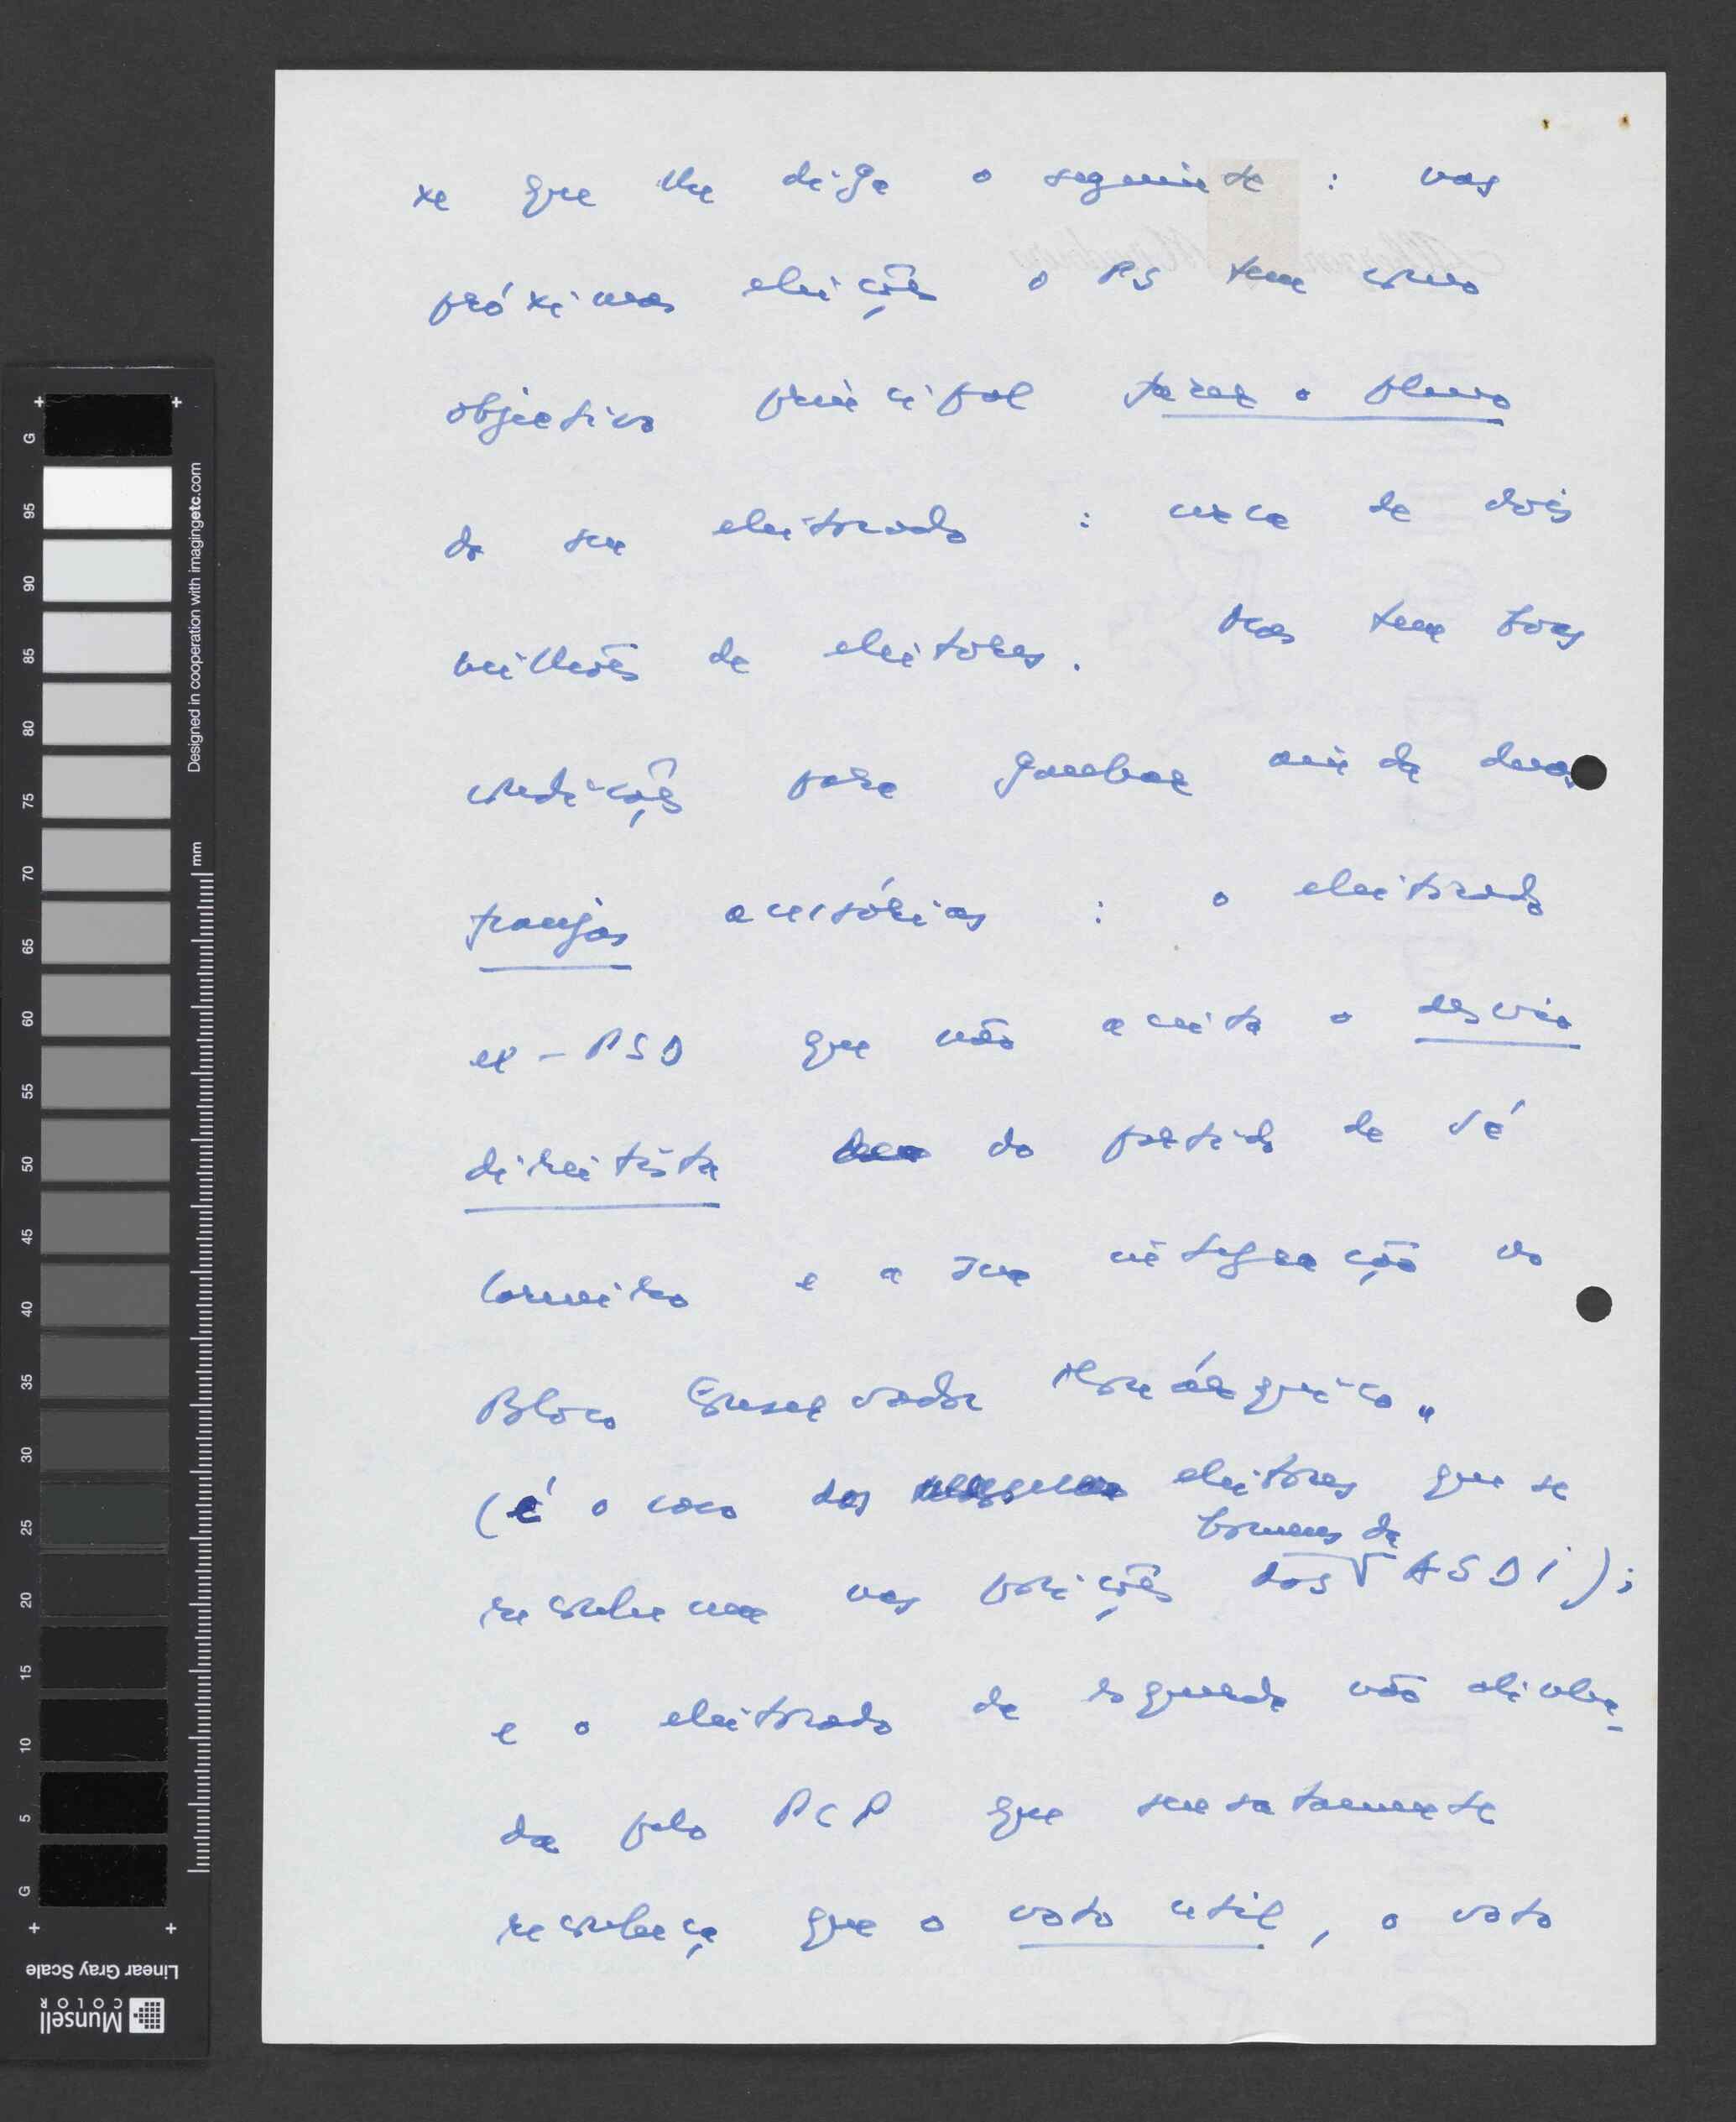 xe que lhe diga o seguinte : nas
próximas eleições o PS tem como
objectivo principal fazer o pleno
do seu eleitorado : cerca de dois
milhões de eleitores. Mas tem boas
condições para ganhar ainda duas
franjas acessórias : o eleitorado
ex-PSD que não aceita o desvio
direitista do partido de Sá
Carneiro e a sua integração no
Bloco Conservador Monárquico"
(é o caso dos eleitores que se
reconhecem nas posições dos homens da ASDI);
e o eleitorado de esquerda não aliena-
da pelo PCP que sensatamente
reconheça que o voto util, o voto
G
95
90
85
80
75
70
65
60
55
50
45
40
35
30
25
20
15
10
5
G
mm
Designed in cooperation with imagingetc.com
Linear Gray Scale
Munsell
COLOR